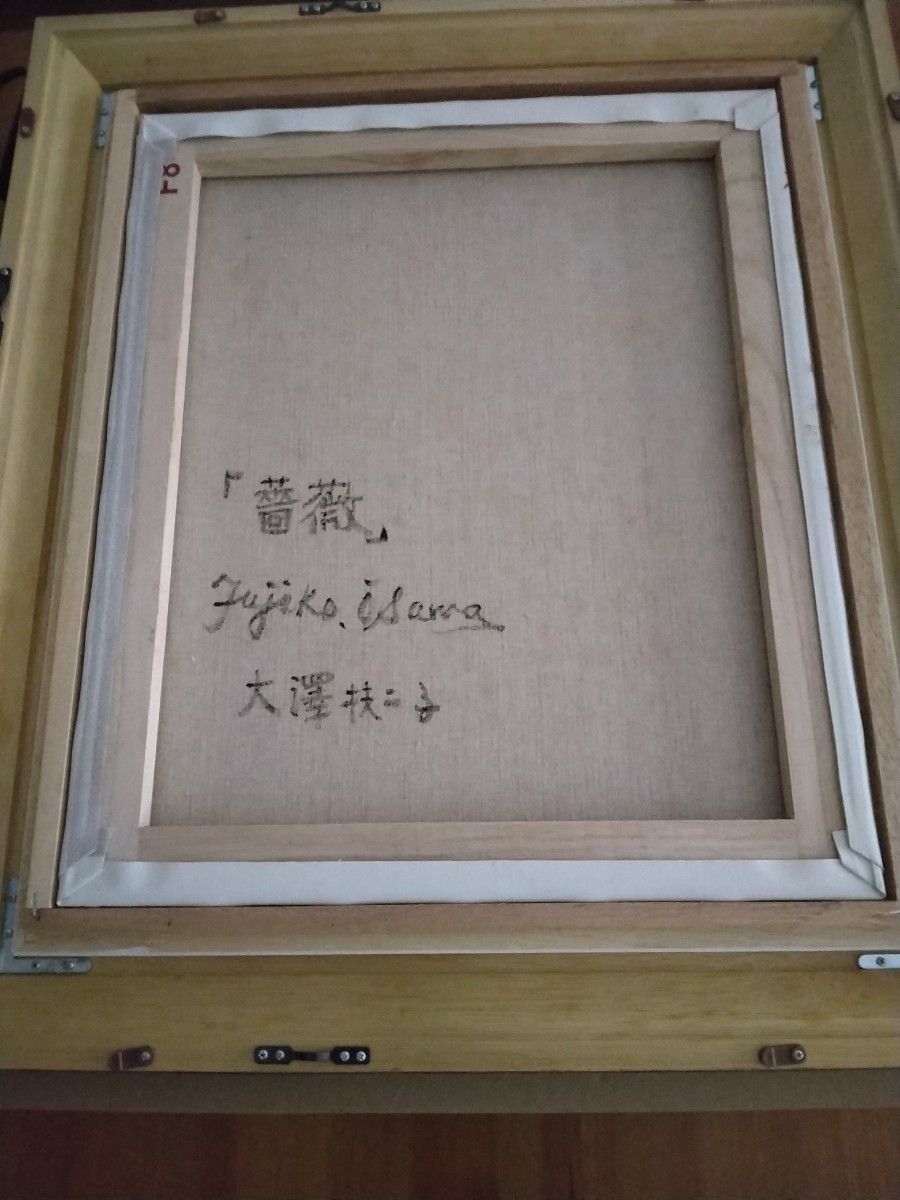 F8
「薔薇」
Fujiko.
大澤扶二子